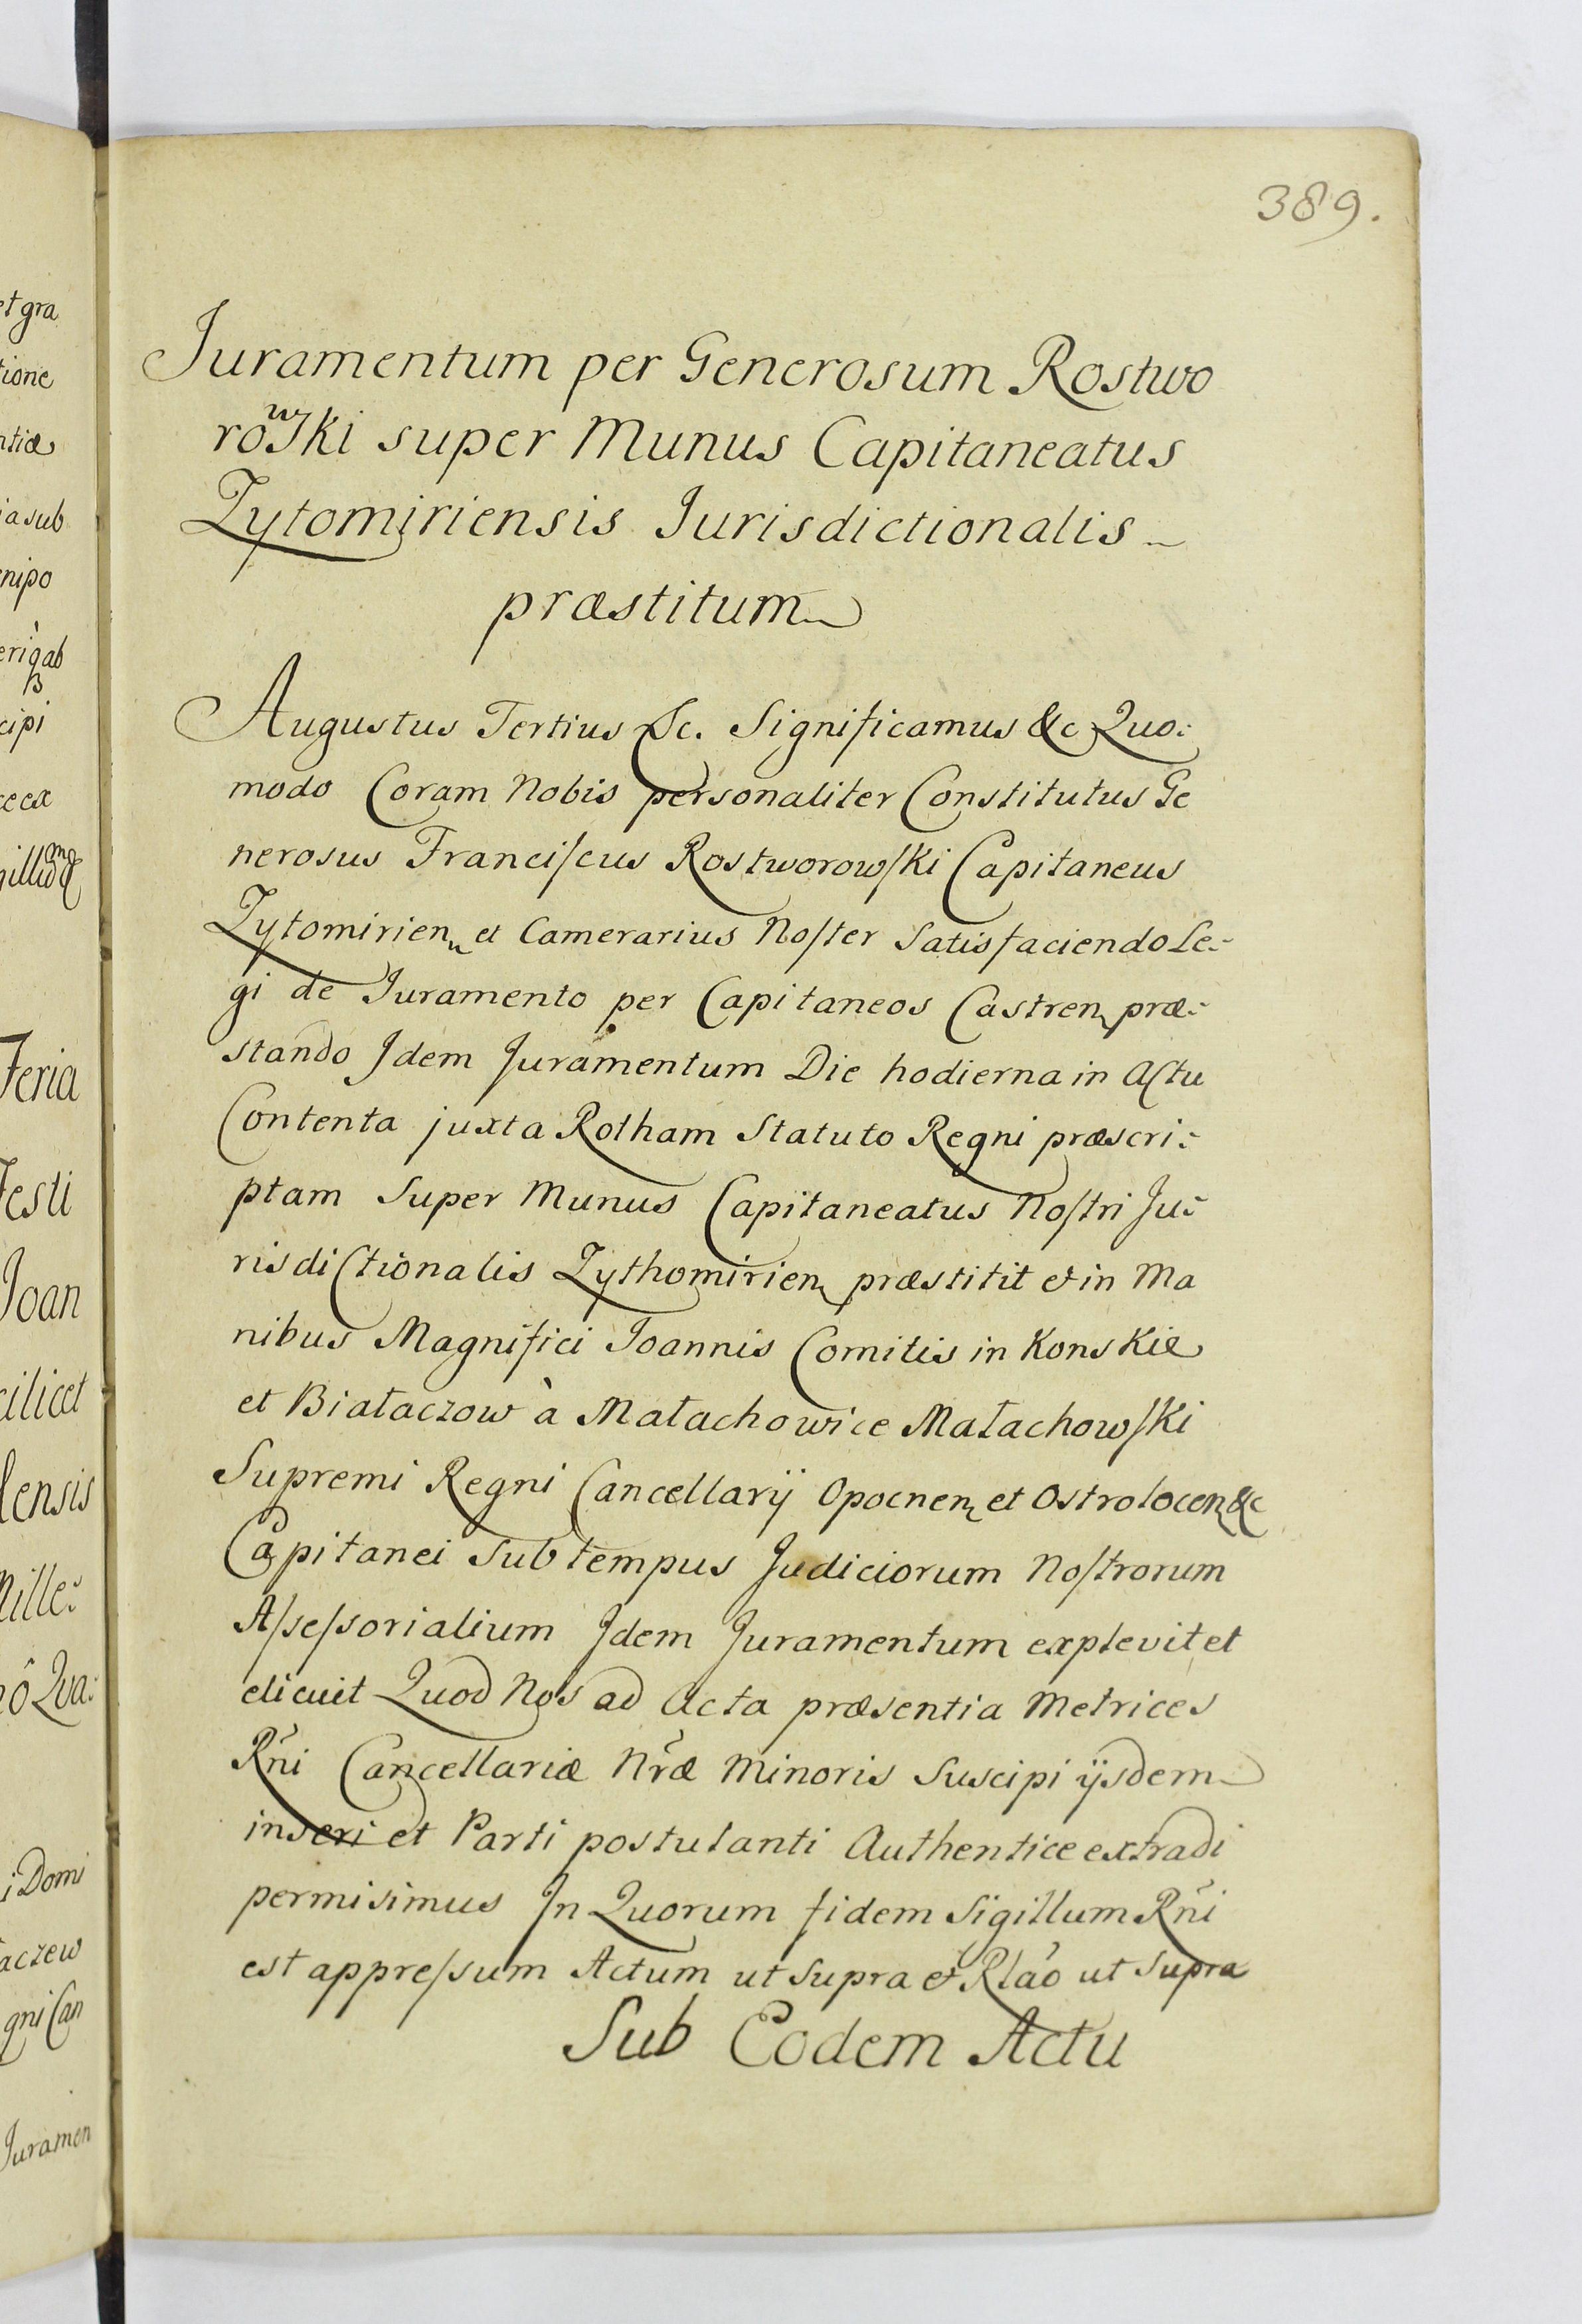 389.
Juramentum per Generosum Rostwo
rowski super Munus Capitaneatus
Zytomiriensis Jurisdictionalis
præstitum
Augustus Tertius &c. Significamus &c Quo:
modo Coram Nobis personaliter Constitutus Ge
nerosus Franciscus Rostworowski Capitaneus
Zytomirien et Camerarius Noster Satisfaciendo Le:
gi de Juramento per Capitaneos Castren præ:
stando Jdem Juramentum Die hodierna in Actu
Contenta juxta Rotham Statuto Regni præscri:
ptam Super Munus Capitaneatus Nostri Ju:
risdictionalis Zythomirien præstitit et in Ma
nibus Magnifici Joannis Comitis in Konskie
et Białaczow à Małachowice Małachowski
Supremi Regni Cancellarij Opocnen et Ostrołocen &c
Capitanei Sub tempus Judiciorum Nostrorum
Assessorialium Jdem Juramentum explevit et
elicuit Quod Nos ad Acta præsentia Metrices
Rñi Cancellariæ Nræ Minoris Suscipi ijsdem
inseri et Parti postulanti Authentice extradi
permisimus Jn Quorum fidem Sigillum Rñi
est appressum Actum ut Supra et Rlaõ ut Supra
Sub Eodem Actu
et gra
tione
ntiæ
ia sub
nipo
cipi
Feria
Festi
Joan
cilicet
lensis
Mille:
ô Qua:
i Domi
aczew
gni Can
Juramen